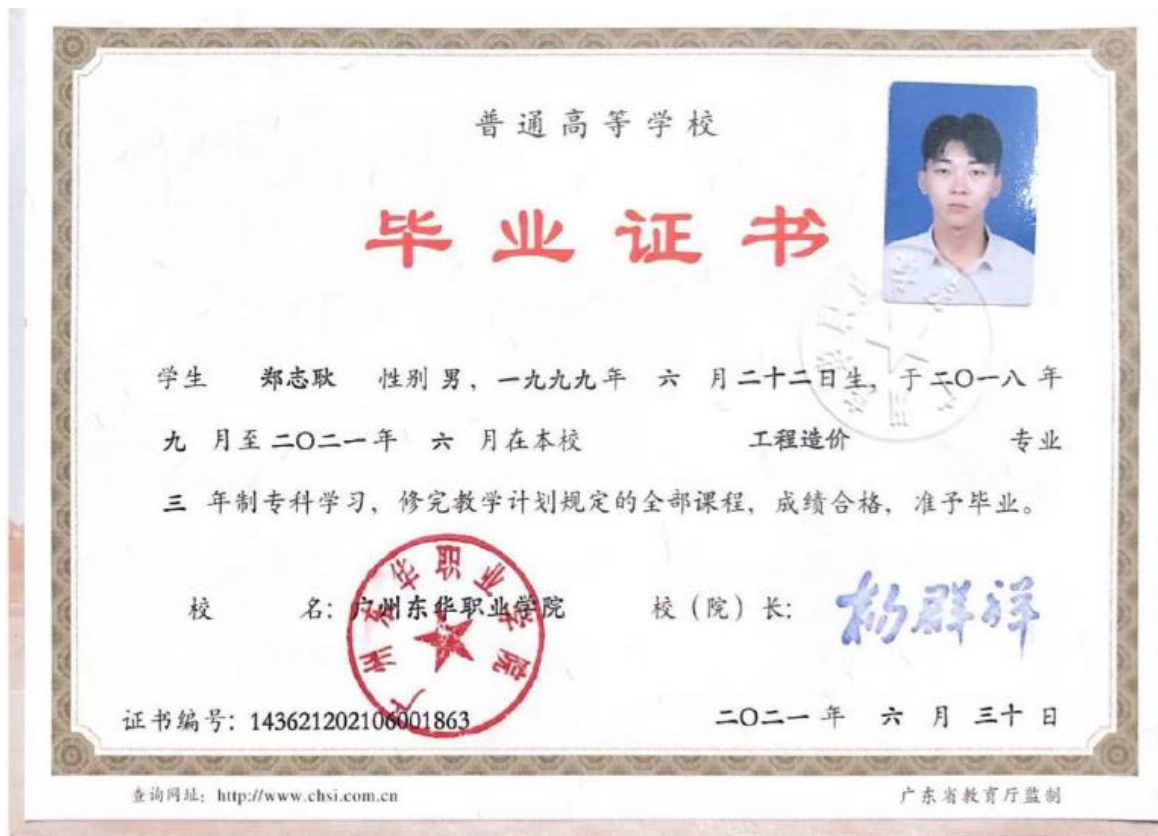 普通高等学校
毕业证书
学生 郑志耿 性别 男，一九九九年 六 月二十二日生，于二〇一八 年
九 月至二〇二一年 六 月在本校 工程造价 专业
三 年制专科学习，修完教学计划规定的全部课程，成绩合格，准予毕业。
校 名：广州东华职业学院 校（院）长：杨群祥
广州东华职业学院
证书编号：143621202106001863 二〇二一 年 六 月 三十 日
查询网址：http://www.chsi.com.cn 广东省教育厅监制